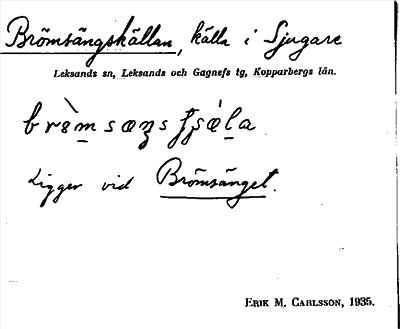 Brömsängskällan, källa i Sjugare
Leksands sn, Leksands och Gagnefs tg, Kopparbergs län.
Ligger vid Brömsänget.
ERIK M. CARLSSON, 1935.